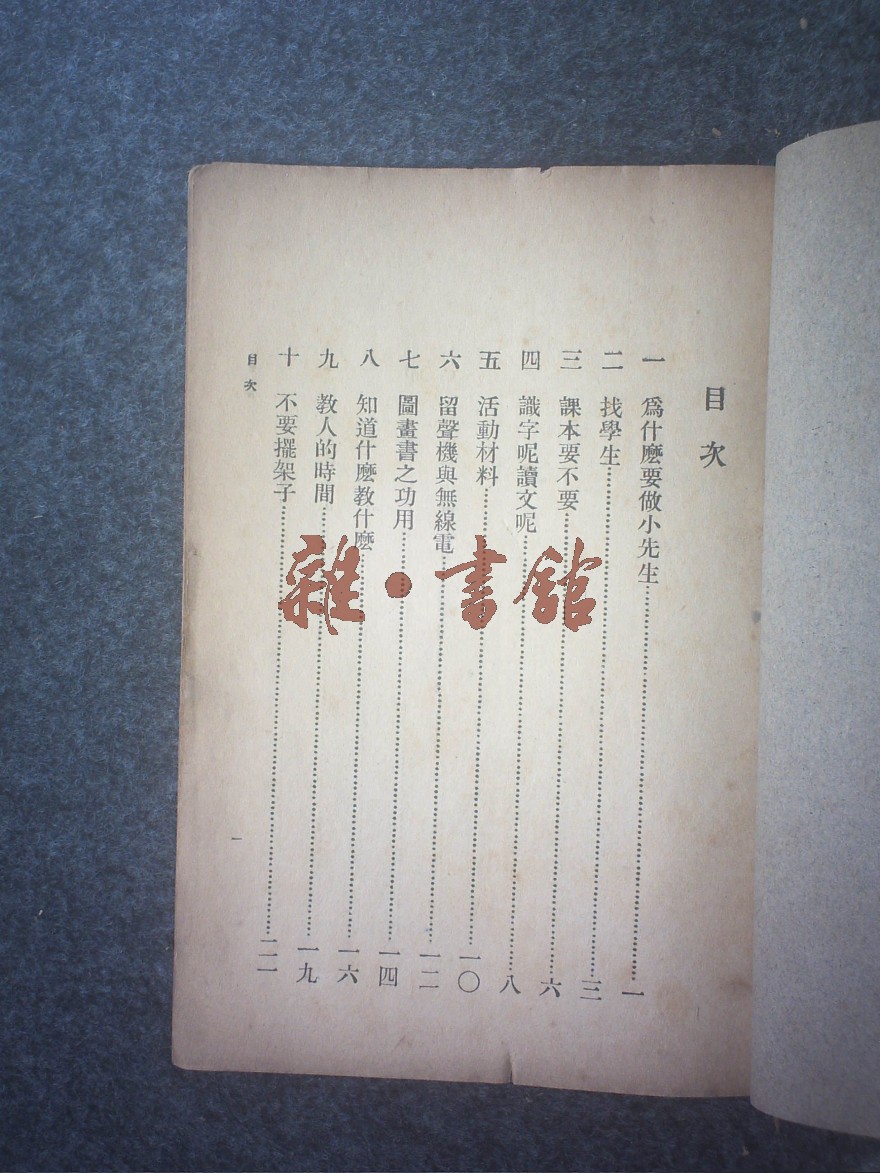 目次
一 爲什麽要做小先生…………一
二 找學生…………三
三 課本要不要…………六
四 識字呢讀文呢…………八
五 活動材料…………一〇
六 留聲機與無線電…………一二
七 圖畫書之功用…………一四
八 知道什麽教什麽…………一六
九 教人的時間…………一九
十 不要擺架子…………二一
目次
一
雜·書館